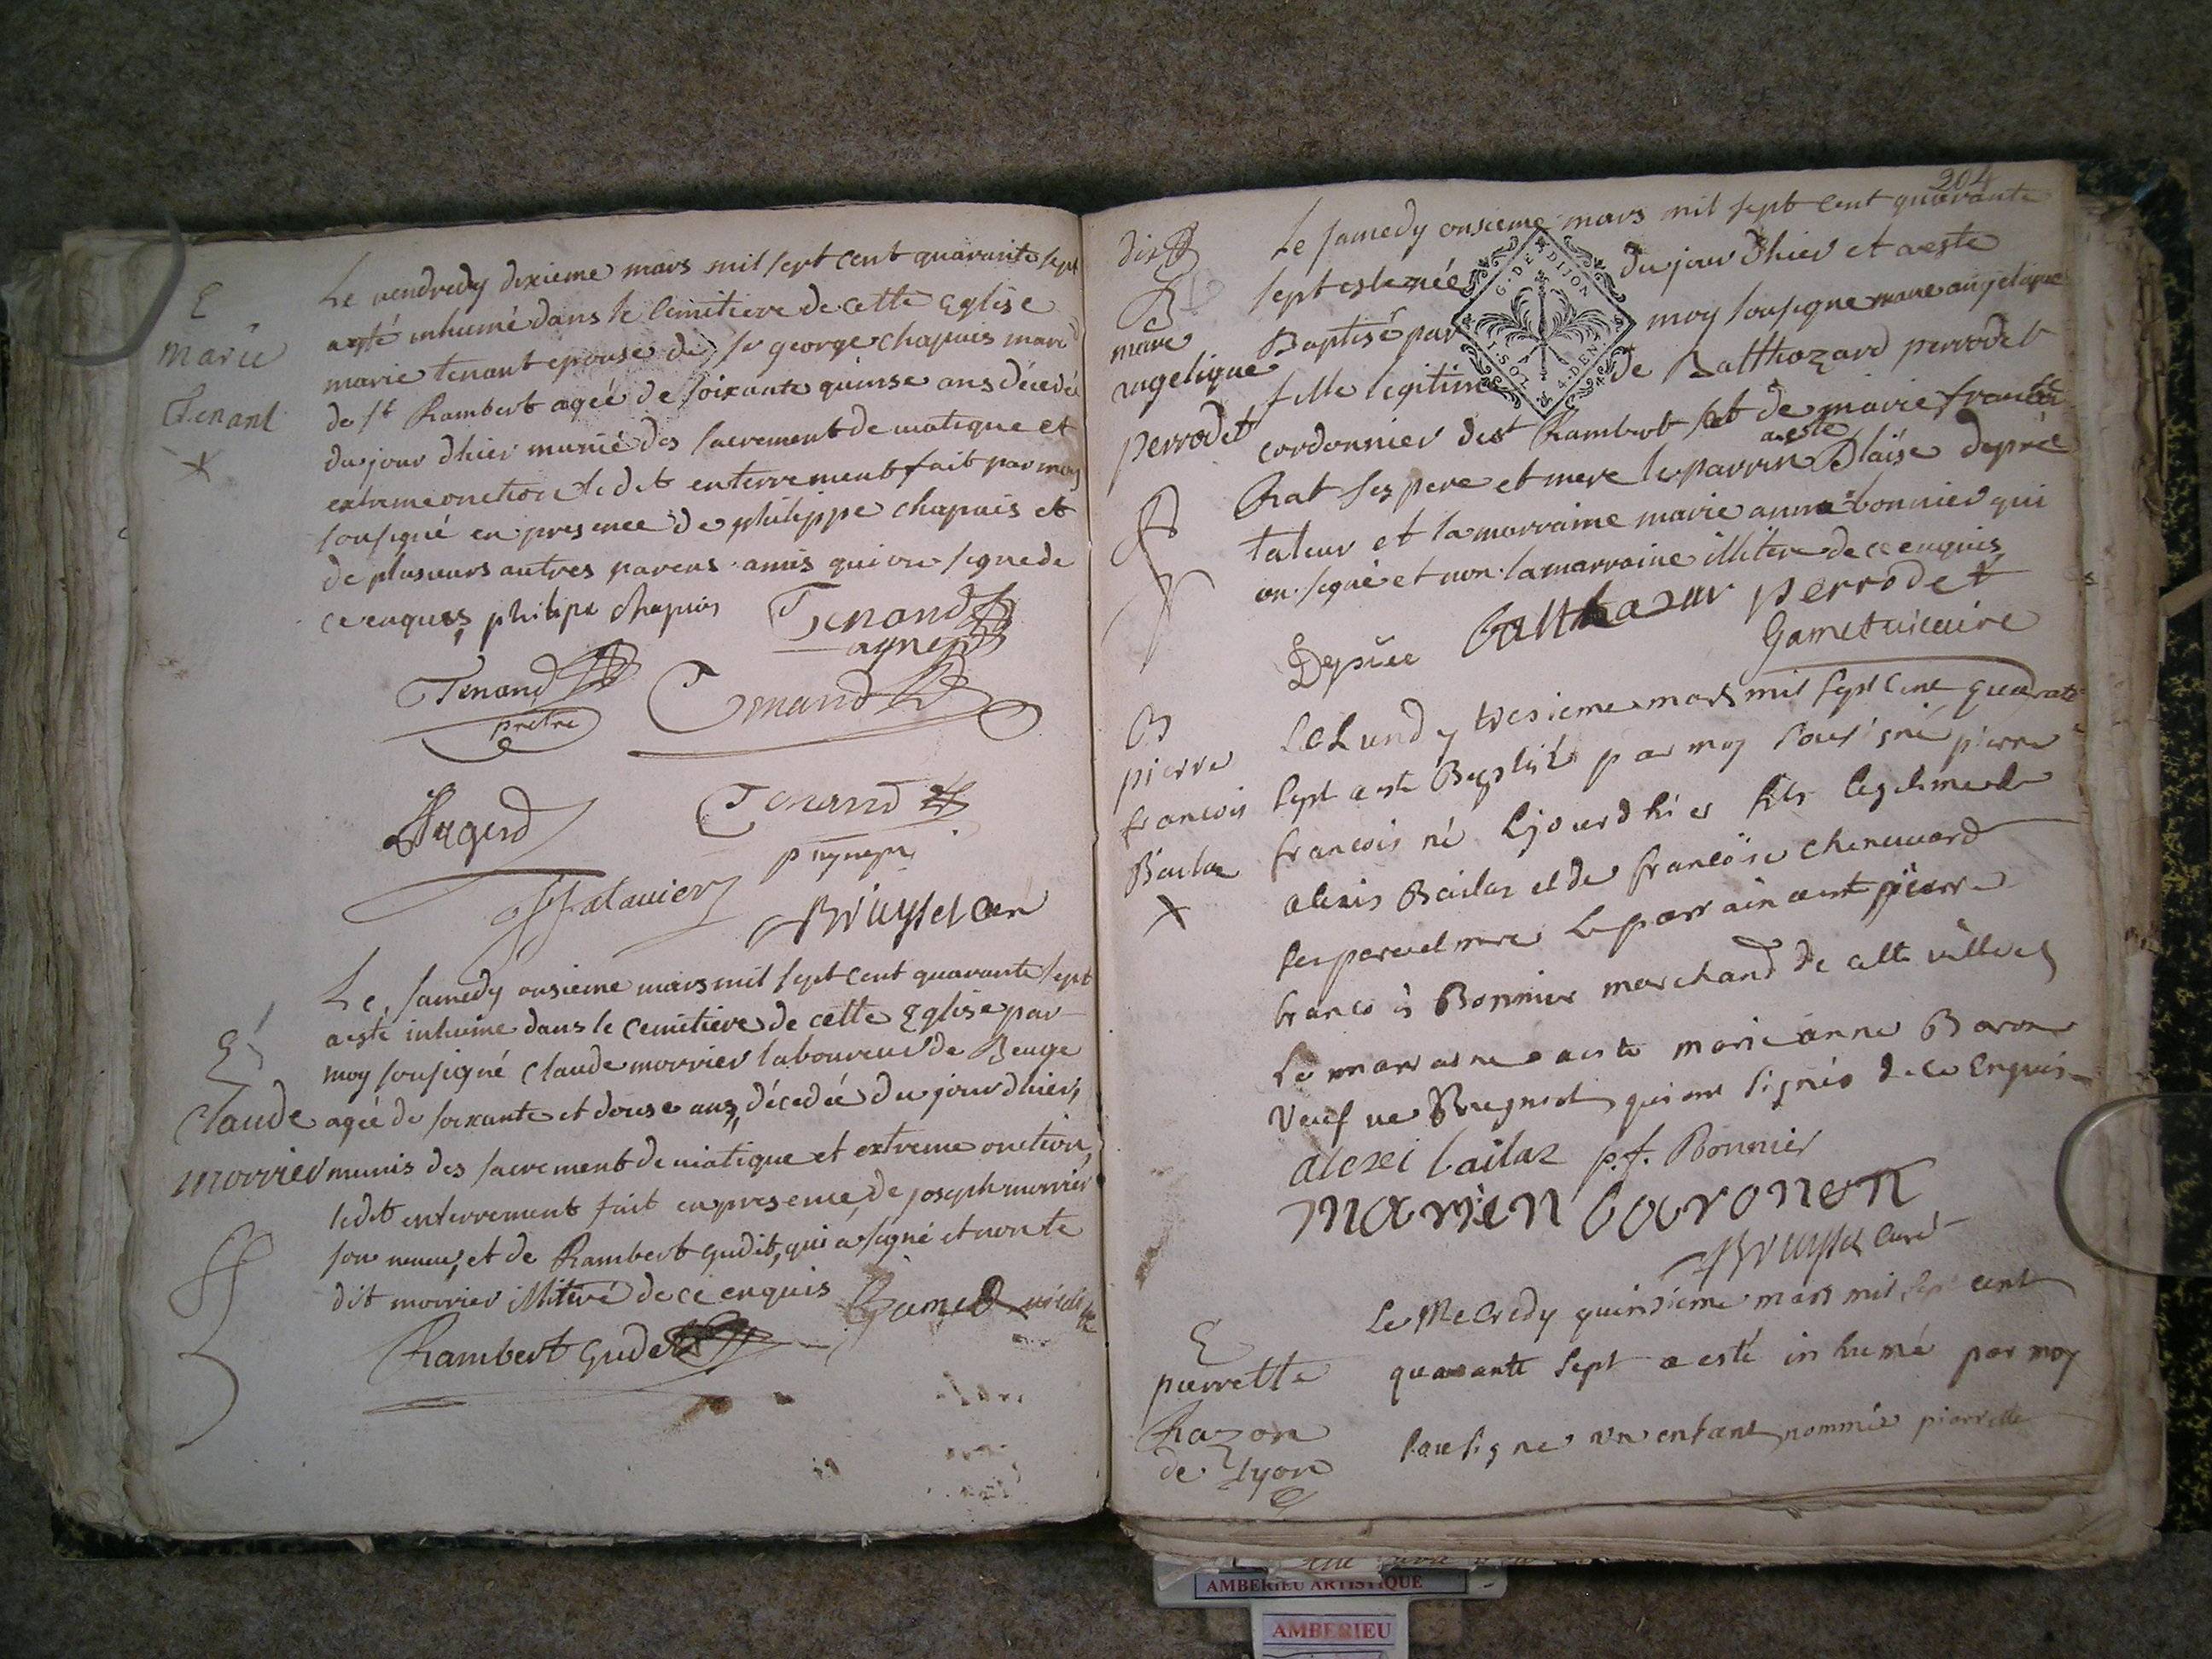 E
marie
Tenant
Le vendredy dixieme mars mil sept cent quarante sept
a esté inhumé dans le cimitiere de cette Eglise
marie tenant epouse de sr george chapuis marc
de st Rambert agée de soixante quinse ans décédé
du jour dhier munié des sacrement de viatique et
extreme onction ledit enterrement fait par moy
sousigné en presence de philippe chapuis et
de plusieurs autres parens amis qui on signe de
ce enquis philipe chapuis Tenand
agnes
Tenand
pretre
Tenand
Augerd
Tenand
Bruyset curé
E
Claude
morrier
Le samedy onsieme mars mil sept cent quarante sept
a esté inhume dans le cemitiere de cette Eglise par
moy sousigné Claude morrier laboureur de Beuge
agée de soixante et douse ans, décedée du jour dhier,
munis des sacrement de viatique et extreme onction,
ledit enterrement fait en presence, de joseph morrier
son neveu, et de Rambert gudit, qui a signé et non le
dit morrier illiteré de ce enquis Gamet vicaire
Rambert gudet
204
B
marie
angelique
perrodet
Le samedy onsieme mars mil sept cent quarante
sept est née du jour dhier et a esté
G. DE DIJON
1. SOL 4. DEN
Baptisé par moy sousigne marie angelique
fille legitime de Balthazard perrodet
cordonnier de st Rambert et de marie francoise
Rat ses pere et mere le parrin a esté Blaise deprée
taleur et la marraine marie anne bonnier qui
on signé et non la marraine illitere de ce enquis
Depree balthazar perrodet
Gamet vicaire
B
pierre
francois
Bailas
Le Lundy tresieme mars mil sept cent quarate
sept a esté Baptisé par moy sousigné pierre
francois né le jourdhier fils legitime de
alexis Bailas et de francoise chenavard
ses pere et mere le parrain a esté pierre
francois Bonnier marchand de cette ville et
la marraine a esté marie anne Baron
veufve Brugnot qui ont signés de ce enquis
alexei bailaz p.f. Bonnier
marien baronen
Bruyset curé
E
pierrette
Razon
de Lyon
Le Mecredy quinsieme mars mil sept cent
quarante sept a esté inhumé par moy
sousigne un enfant nommée pierrette
AMBERIEU ARTISTIQUE
AMBERIEU